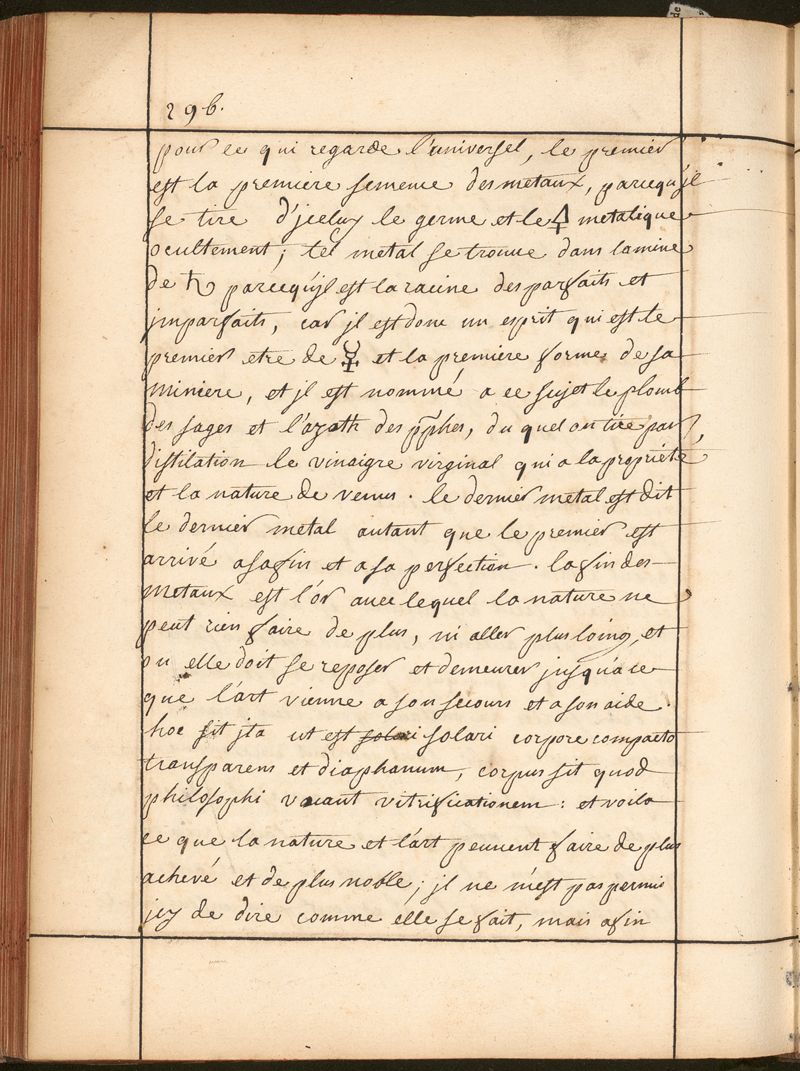 296.
pour ce qui regarde l'universel, le premier
est la premiere semence des metaux, parcequ'jl
se tire d'jceluy le germe et le 🜍 metalique
ocultement; tel metal se trouue dans la mine
de ♄ parcequ'jl est la racine des parfaits et
jmparfaits, car jl est donc un esprit qui est le
premier etre de ☿ et la premiere forme de sa
miniere, et jl est nommé a ce sujet le plomb
des sages et l'azoth des pphes, du quel on tire par
distilation le vinaigre virginal qui a la propriété
et la nature de venus. le dernier metal est dit
le dernier metal autant que le premier est
arrivé a sa fin et a sa perfection. la fin des
metaux est l'or avec lequel la nature ne
peut rien faire de plus, ni aller plus loing, et
ou elle doit se reposer et demeurer jusqu'a ce
que l'art vienne a son secours et a son aide.
hoc sit jta ut est solari solari corpore compacto
transparens et diaphanum, corpus sit quod
philosophi vocant vitrificationem: et voila
ce que la nature et l'art peuuent faire de plus
achevé et de plus noble; jl ne m'est pas permis
jcy de dire comme elle se fait, mais afin